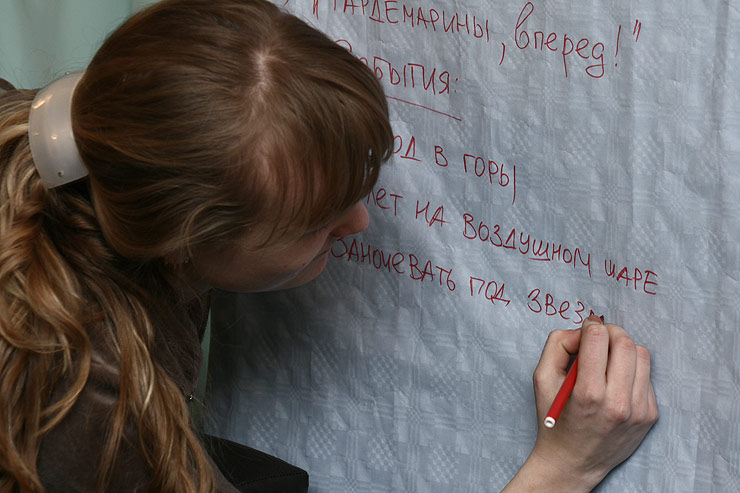 "ГАРДЕМАРИНЫ, вперед!"
ОБЫТИЯ:
ОД В ГОРЫ
ЛЕТ НА ВОЗДУШНОМ ШАРЕ
ЗАНОЧЕВАТЬ ПОД ЗВЕЗ